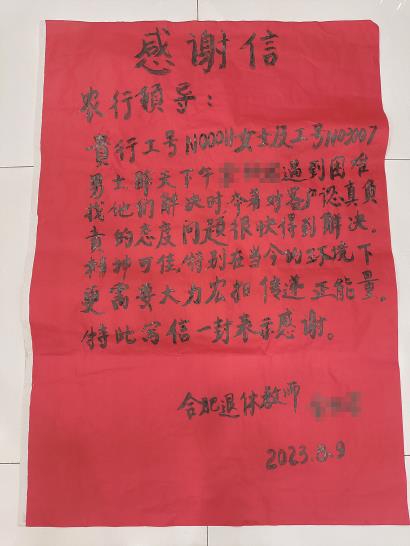 感谢信
农行领导：
贵行工号N000H女士及工号N03007
男士昨天下午遇到困难
找他们解决时，本着对客户认真负
责的态度问题很快得到解决。
精神可佳，特别在当今的环境下
更需要大力宏扣传递正能量。
特此写信一封表示感谢。
合肥退休教师
2023.8.9